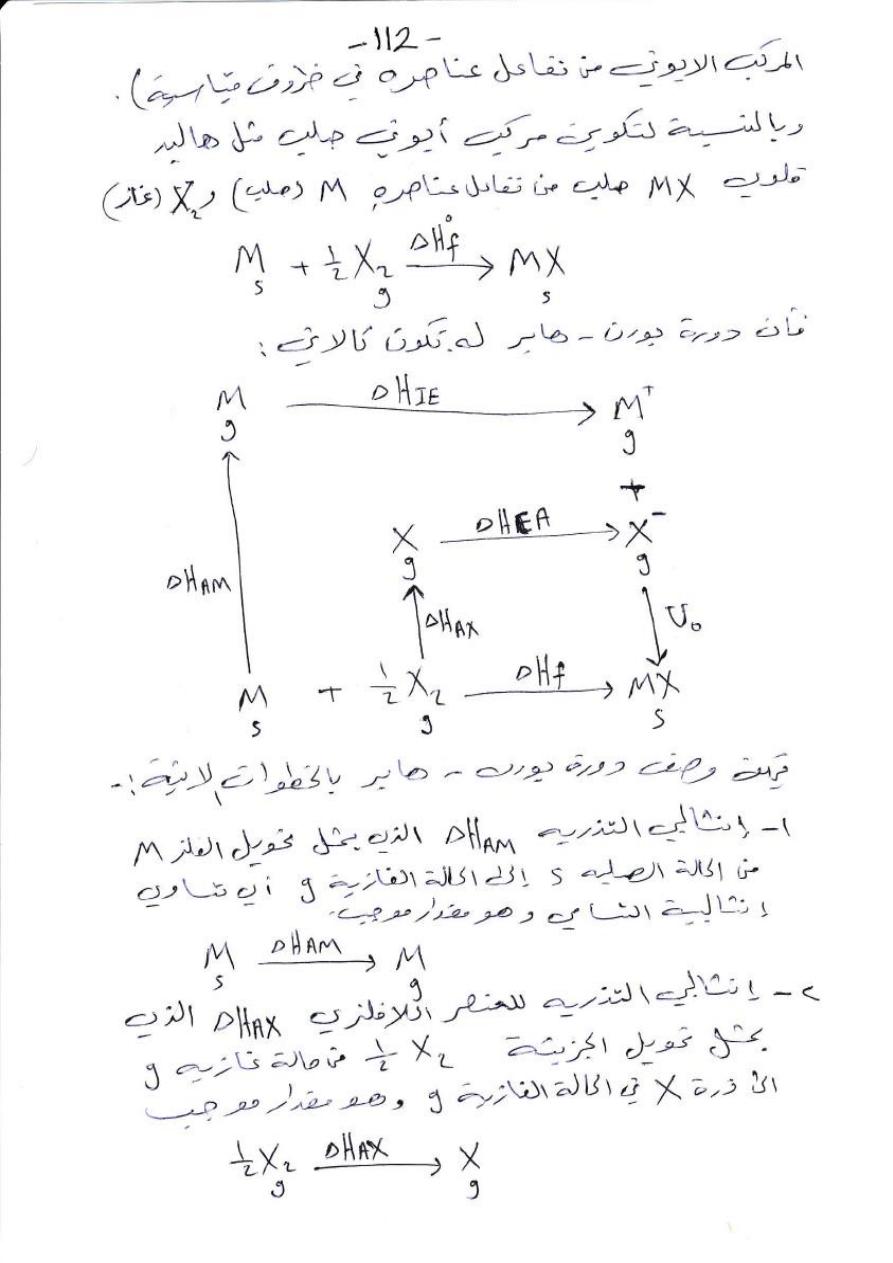 -112-
المركب الايوني من تفاعل عناصره في ظروف قياسية).
وبالنسبة لتكوين مركب أيوني صلب مثل هاليد
قلوي MX صلب من تفاعل عناصره M (صلب) و X₂ (غاز)
M s + ½X₂ g —ΔH°f→ MX s
فأن دورة بورن - هابر له تكون كالاتي :
M g —ΔHIE→ M⁺ g
+
X g —ΔHEA→ X⁻ g
ΔHAM ΔHAX U₀
M s + ½X₂ g —ΔHf→ MX s
وصف دورة بورن - هابر بالخطوات الاتية :-
١- إنثالبي التذريه ΔHAM الذي يمثل تحويل الفلز M
من الحالة الصلبه s إلى الحالة الغازية g أي تساوي
إنثالبية التسامي وهو مقدار موجب.
M s —ΔHAM→ M g
٢- إنثالبي التذريه للعنصر اللافلزي ΔHAX الذي
يمثل تحويل الجزيئة ½X₂ من حالة غازيه g
الى ذرة X في الحالة الغازية g وهو مقدار موجب
½X₂ g —ΔHAX→ X g